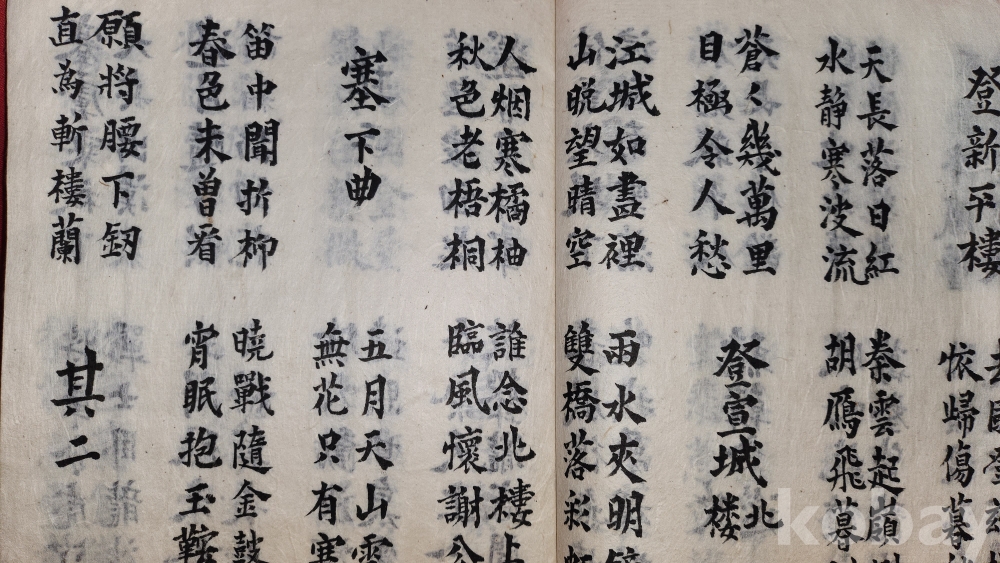 登新平樓
國登
歸傷暮
天長落日紅
水静寒波流
秦雲起嶺
胡鴈飛暮
蒼々幾萬里
目極令人愁
登宣城北楼
江城如畫裡
山晚望晴空
兩水夾明鏡
雙橋落彩虹
人烟寒橘柚
秋色老梧桐
誰念北樓上
臨風懷謝公
塞下曲
五月天山雪
無花只有寒
笛中聞折柳
春色未曾看
曉戰隨金鼓
宵眠抱玉鞍
願將腰下釼
直為斬樓蘭
其二
kobay